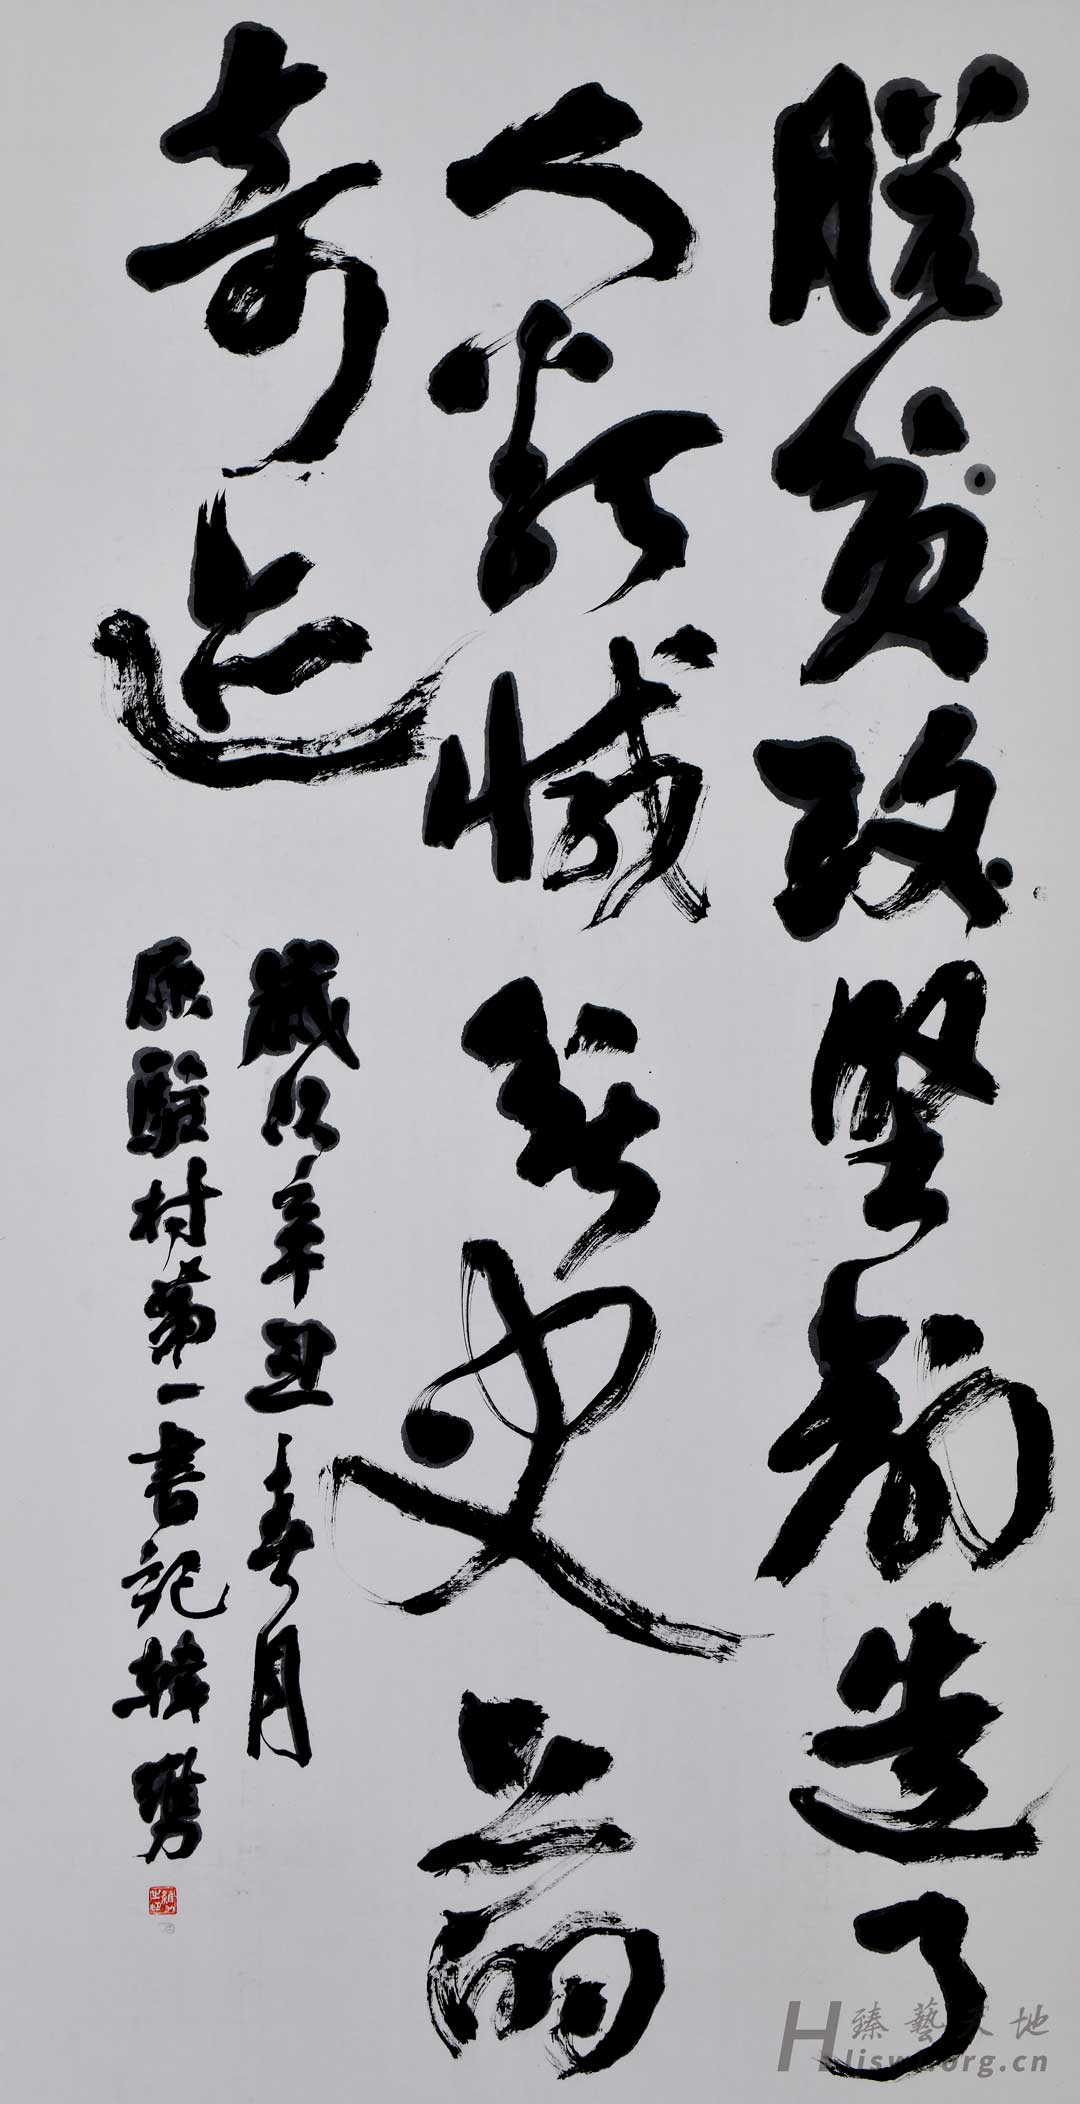 脱贫攻坚创造了
人类减贫史上的
奇迹
岁次辛丑春月
原驻村第一书记韩
臻艺天地